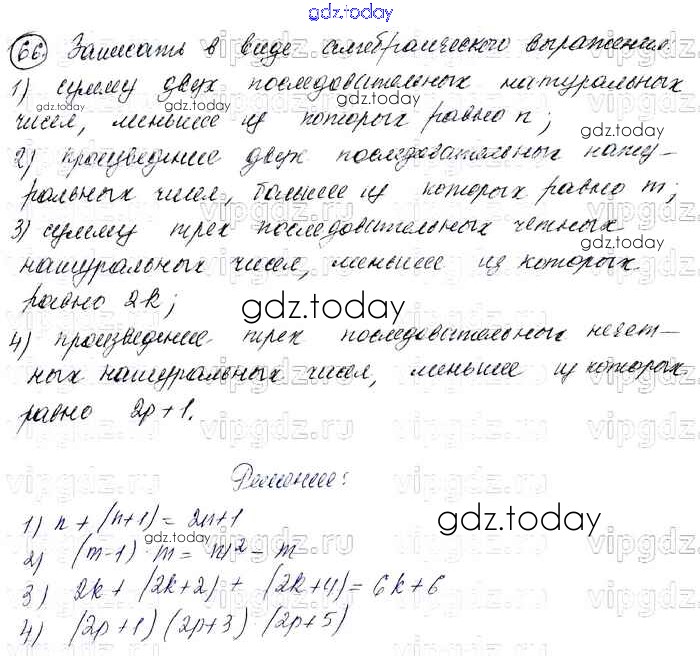 gdz.today
66. Записать в виде алгебраического выражения:
1) сумму двух последовательных натуральных
gdz.today
чисел, меньшее из которых равно n;
gdz.today
2) произведение двух последовательных нату-
ральных чисел, большее из которых равно m;
vipgdz.ru
3) сумму трех последовательных четных
gdz.today
натуральных чисел, меньшее из которых
равно 2k;
gdz.today
4) произведение трех последовательных нечет-
ных натуральных чисел, меньшее из которых
равно 2p+1.
vipgdz.ru
Решение:
vipgdz.ru
1) n + (n+1) = 2n+1
gdz.today
gdz.today
2) (m-1) · m = m² - m
3) 2k + (2k+2) + (2k+4) = 6k+6
4) (2p+1) (2p+3) · (2p+5)